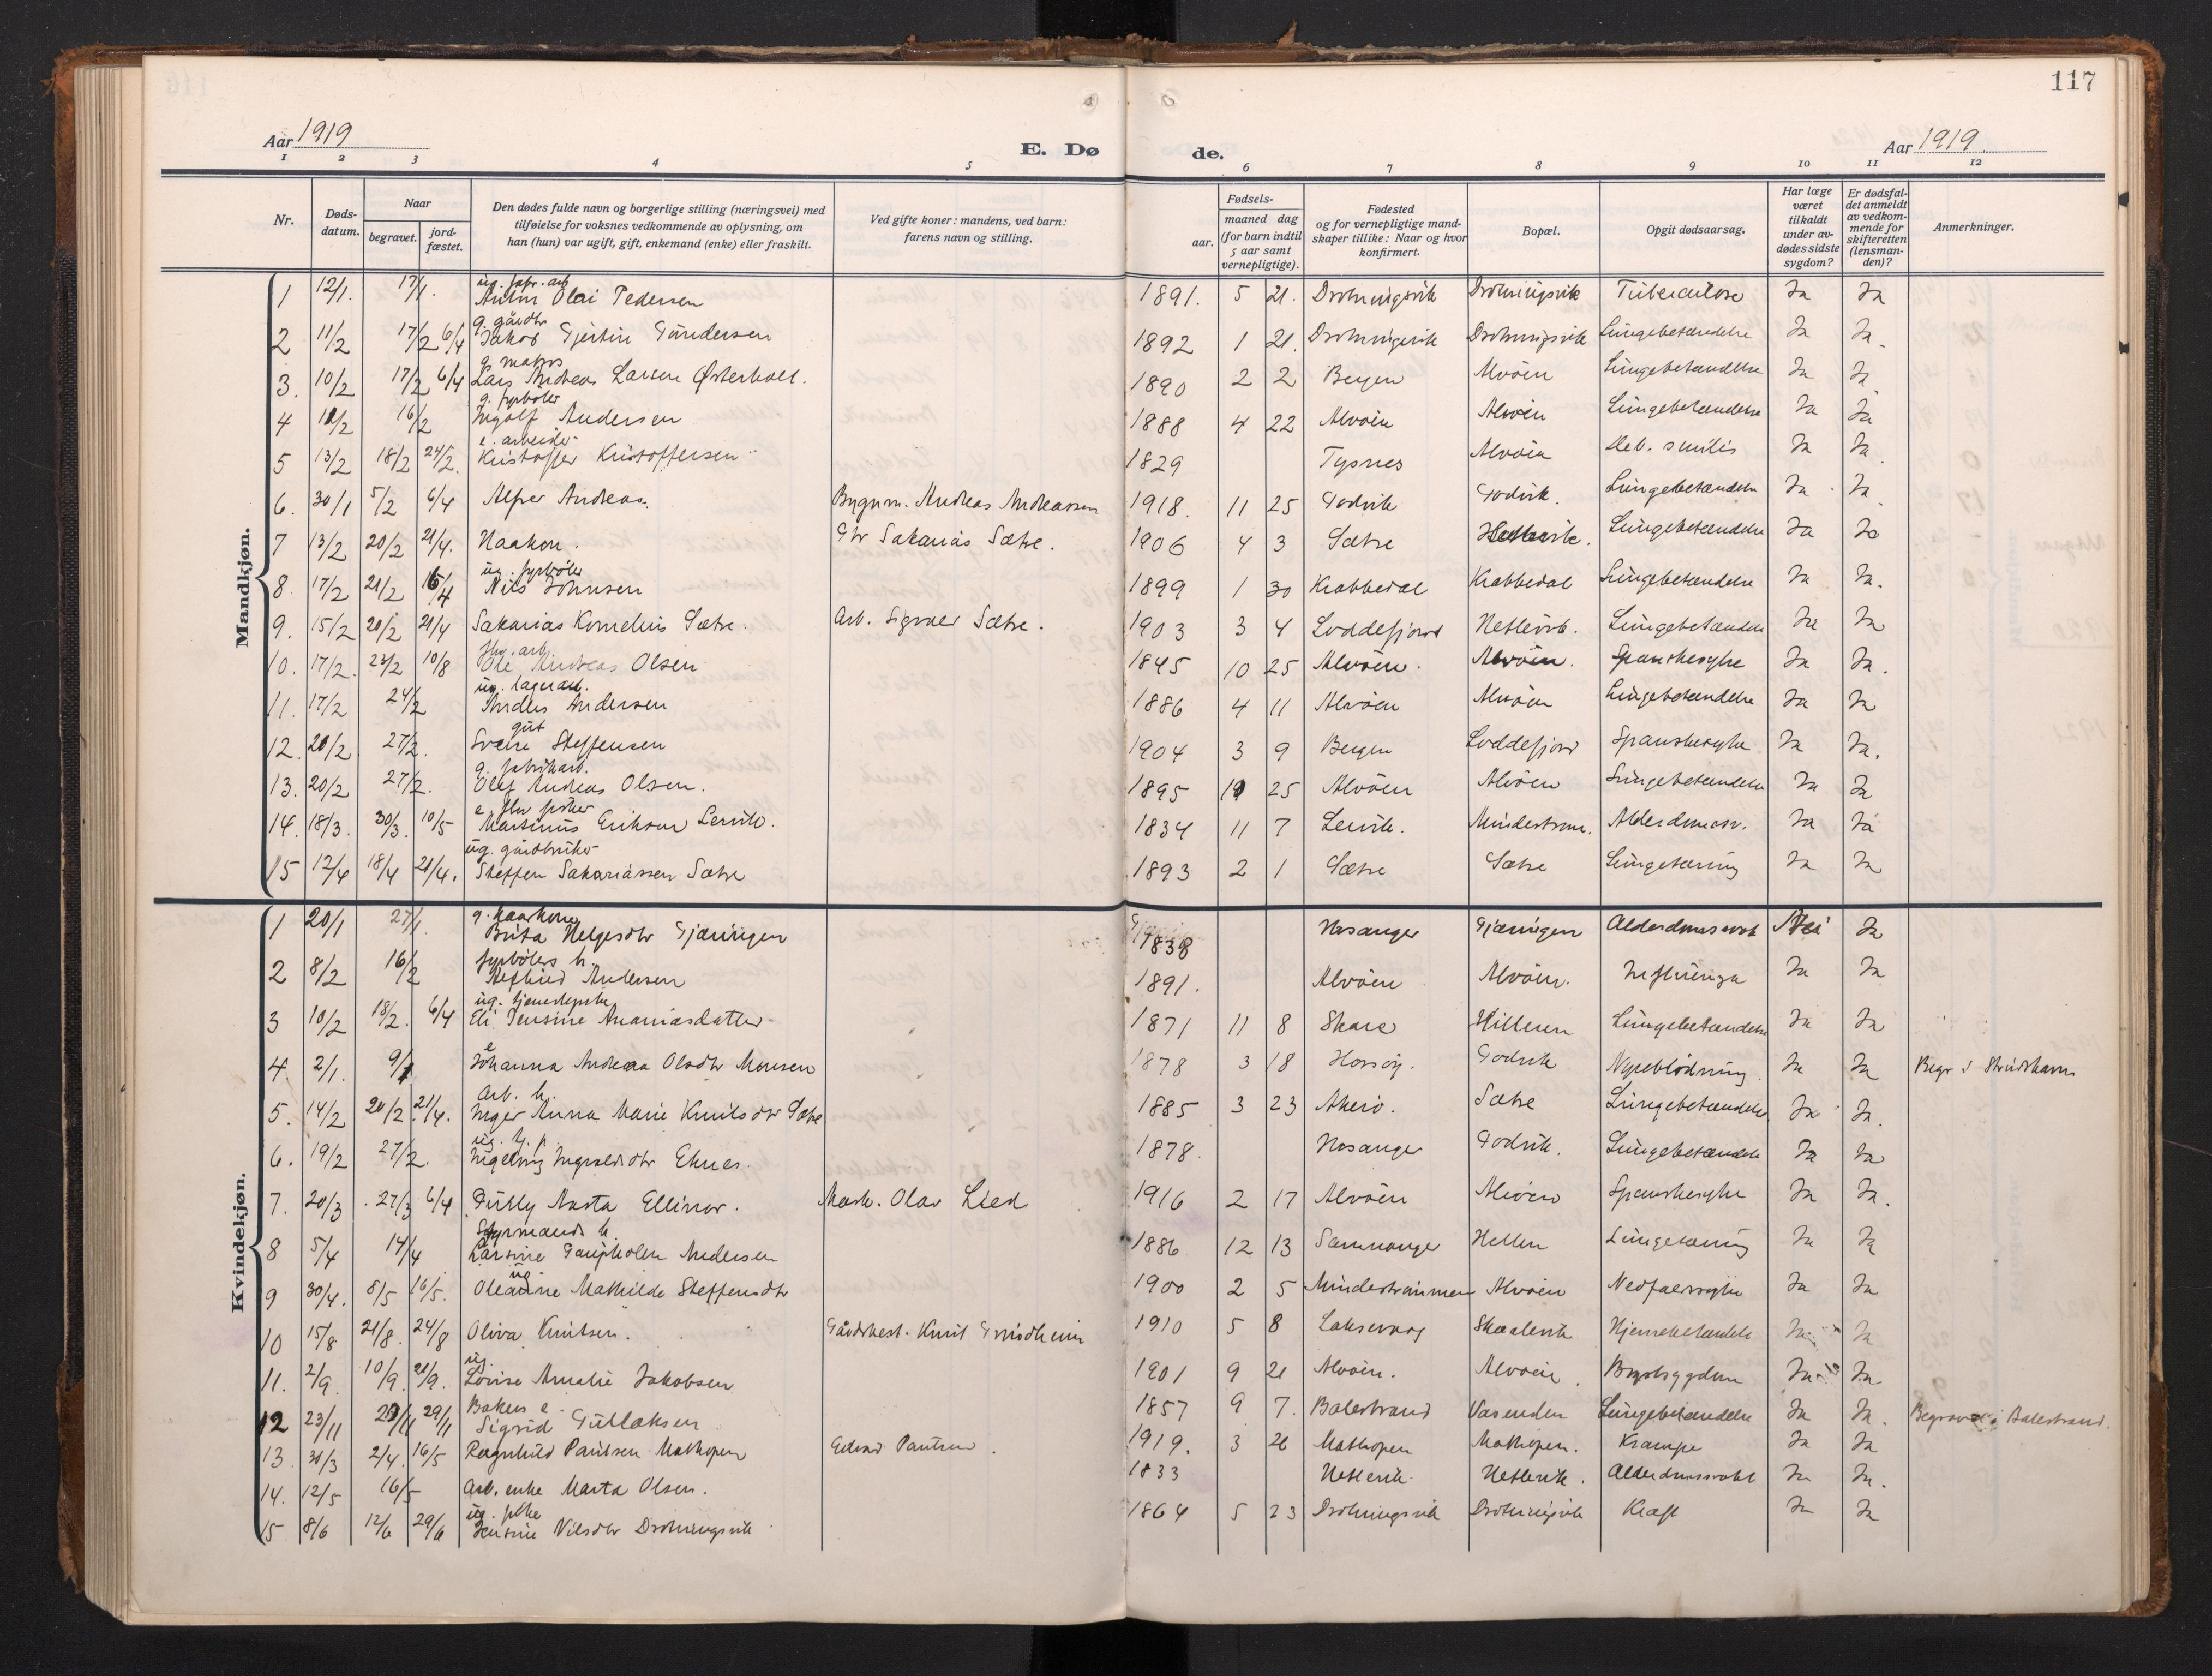 117
Aar 1919
E. Dø
de.
Aar 1919.
1 2 3 4 5 6 7 8 9 10 11 12
Nr.
Døds-
datum.
Naar
begravet.
jord-
fæstet.
Den dødes fulde navn og borgerlige stilling (næringsvei) med
tilføielse for voksnes vedkommende av oplysning, om
han (hun) var ugift, gift, enkemand (enke) eller fraskilt.
Ved gifte koner: mandens, ved barn:
farens navn og stilling.
Fødsels-
aar.
maaned dag
(for barn indtil
5 aar samt
vernepligtige).
Fødested
og for vernepligtige mand-
skaper tillike: Naar og hvor
konfirmert.
Bopæl.
Opgit dødsaarsag.
Har læge
været
tilkaldt
under av-
dødes sidste
sygdom?
Er dødsfal-
det anmeldt
av vedkom-
mende for
skifteretten
(lensman-
den)?
Anmerkninger.
Mandkjøn.
ug. fabr. arb
1 12/1. 17/1. Anton Olai Pedersen 1891. 5 21. Drotningsvik Drotningsvik Tuberculose Ja Ja
g. gårdbr
2 11/2 17/2 6/4 Jakob Gjertin Gundersen 1892 1 21. Drotningsvik Drotningsvik Lungebetændelse Ja Ja.
g. matros
3. 10/2 17/2 6/4 Lars Andreas Larsen Østerhole. 1890 2 2 Bergen Alvöen Lungebetændelse Ja Ja
g. fyrböter
4 16/2 Ingolf Andersen 1888 4 22 Alvöen Alvöen Lungebetændelse Ja Ja
e. arbeider
5 13/2 18/2 24/2. Kristoffer Kristoffersen 1829 Tysnes Alvöen Deb. senilis Ja Ja.
6. 30/1 5/2 6/4 Alfer Andreas. Bygnm. Andreas Andreassen 1918. 11 25 Godvik Godvik. Lungebetændelse Ja Ja
7 13/2 20/2 21/4. Haakon. Gbr Sakarias Sætre. 1906 4 3 Sætre Hetlevik. Lungebetændelse Ja Ja
ug. fyrböter
8 17/2 21/2 16/4 Nils Johnsen 1899 1 30 Krabbedal Krabbedal Lungebetændelse Ja Ja.
9. 15/2 20/2 21/4 Sakarias Kornelius Sætre. Arb. Sigvaer Sætre. 1903 3 4 Loddefjord Hetlevik. Lungebetændelse Ja Ja
fhv. arb.
10. 17/2. 23/2 10/8 Ole Andreas Olsen 1845 10 25 Alvöen. Alvöen. Spanskesyke Ja Ja.
ug. lagerarb.
11. 17/2 24/2 Anders Andersen 1886 4 11 Alvöen Alvöen Lungebetændelse Ja Ja
gut
12. 20/2 27/2. Sverre Steffensen 1904 3 9 Bergen Loddefjord Spanskesyke Ja Ja.
g. fabrikarb.
13. 20/2 27/2. Olaf Andreas Olsen. 1895 25 Alvöen Alvöen Lungebetændelse Ja Ja
e. fhv fisker
14. 18/3. 30/3. 10/5 Martinus Eriksen Lervik. 1834 11 7 Lervik. Mindestrøm. Alderdomssv. Ja Ja
ug. gårdbruker
15 12/4 18/4 21/4. Steffen Sakariassen Sætre 1893 2 1 Sætre Sætre Lungetæring Ja Ja
Kvindekjøn.
g. kaarkone
1 20/1 27/1. Brita Helgesdtr Gjæringen 1838 Hosanger Gjæringen Alderdomssvak Nei Ja
fyrböters h.
2 8/2 16/2 Andersen 1891. Alvöen Alvöen. Influenza Ja Ja
ug. tjenestepike
3 10/2 18/2. 6/4 Eli Jensine Ananiasdatter 1871 11 8 Skare Hilleren Lungebetændelse Ja Ja
e
4. 2/1. 9/1 Johanna Andrea Olsdtr Monsen 1878 3 18 Horsöy. Godvik Nyreblödning. Ja Ja Begr i Strudshavn
Arb. h.
5. 14/2 20/2. 21/4. Inger Anna Marie Knutsdtr Sætre 1885 3 23 Akerö. Sætre Lungebetændelse. Ja Ja.
ug. h. p.
6. 19/2 27/2. Ingeborg Ingvaldsdtr Eknes. 1878. Hosanger Godvik. Lungebetændelse Ja Ja
7. 20/3 27/3 6/4 Dully Aasta Ellinor. Mask. Olav Lied 1916 2 17 Alvöen Alvöen Spanskesyke Ja Ja.
Styrmands h.
8 5/4 14/4 Larsine Gaupholm Andersen 1886 12 13 Samnanger Hellen Lungetæring Ja Ja
ug.
9 30/4. 8/5 16/5. Oleanne Mathilde Steffensdtr 1900 2 5 Mindestrømmen Alvöen Nedfaldssyke Ja Ja
10 15/8 21/8. 24/8 Oliva Knutsen. Gårdbest. Knut Grindheim 1910 5 8 Laksevaag Skaalevik Hjernebetændelse Ja Ja
ug.
11. 2/9. 10/9. 21/9. Lovise Amalie Jakobsen 1901 9 21 Alvöen. Alvöen. Brystsygdom Ja Ja
Bakers e.
12 23/11 29/11 29/11 Sigrid Gutlaksen 1857 9 7. Balestrand Vasenden Lungebetændelse Ja Ja. Begravet i Balestrand.
13. 30/3 2/4. 16/5 Ragnhild Paulsen Mathopen Edvard Paulsen. 1919. 3 26 Mathopen Mathopen. Krampe Ja Ja
14. 12/5 16/5 Arb. enke Marta Olsen. 1833 Hetlevik Hetlevik. Alderdomssvakt Ja Ja.
ug. pike
15 8/6 12/6 29/6 Jensine Nilsdtr Drotningsvik 1864 5 23 Drotningsvik Drotningsvik Kræft Ja Ja